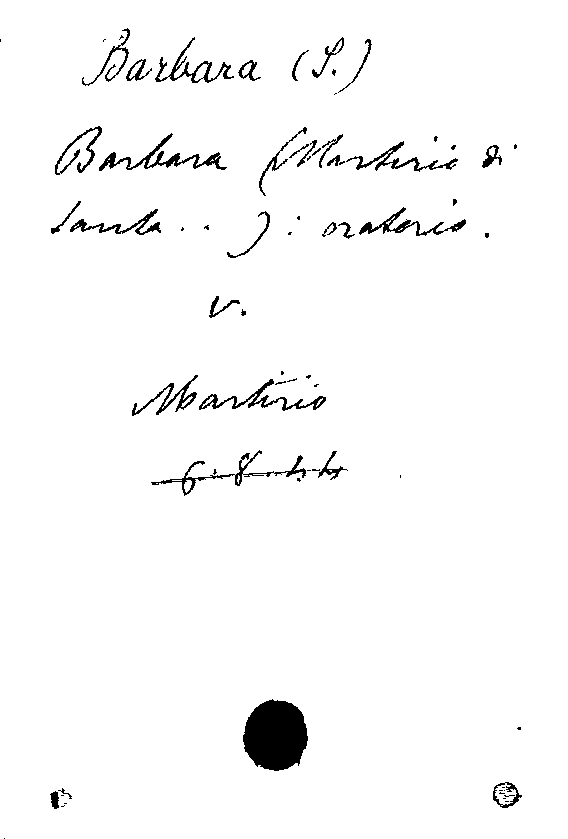 Barbara (S.)
Barbara (Martirio di
Santa . . ) : oratorio.
v.
Martirio